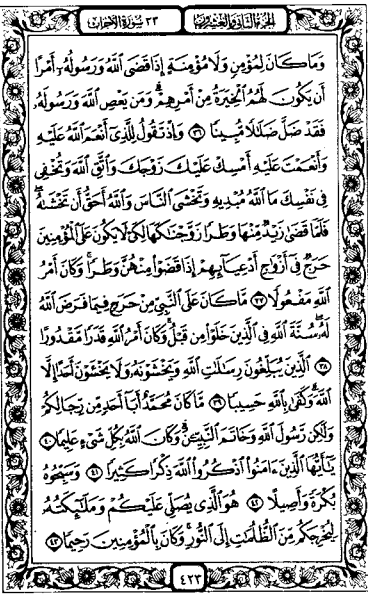 الجزء الثاني والعشرون ٣٣ سورة الأحزاب
وَمَا كَانَ لِمُؤْمِنٍ وَلَا مُؤْمِنَةٍ إِذَا قَضَى ٱللَّهُ وَرَسُولُهُۥٓ أَمْرًا
أَن يَكُونَ لَهُمُ ٱلْخِيَرَةُ مِنْ أَمْرِهِمْ ۗ وَمَن يَعْصِ ٱللَّهَ وَرَسُولَهُۥ
فَقَدْ ضَلَّ ضَلَٰلًا مُّبِينًا ٣٦ وَإِذْ تَقُولُ لِلَّذِىٓ أَنْعَمَ ٱللَّهُ عَلَيْهِ
وَأَنْعَمْتَ عَلَيْهِ أَمْسِكْ عَلَيْكَ زَوْجَكَ وَٱتَّقِ ٱللَّهَ وَتُخْفِى
فِى نَفْسِكَ مَا ٱللَّهُ مُبْدِيهِ وَتَخْشَى ٱلنَّاسَ وَٱللَّهُ أَحَقُّ أَن تَخْشَىٰهُ ۖ
فَلَمَّا قَضَىٰ زَيْدٌ مِّنْهَا وَطَرًا زَوَّجْنَٰكَهَا لِكَىْ لَا يَكُونَ عَلَى ٱلْمُؤْمِنِينَ
حَرَجٌ فِىٓ أَزْوَٰجِ أَدْعِيَآئِهِمْ إِذَا قَضَوْا۟ مِنْهُنَّ وَطَرًا ۚ وَكَانَ أَمْرُ
ٱللَّهِ مَفْعُولًا ٣٧ مَّا كَانَ عَلَى ٱلنَّبِىِّ مِنْ حَرَجٍ فِيمَا فَرَضَ ٱللَّهُ
لَهُۥ ۖ سُنَّةَ ٱللَّهِ فِى ٱلَّذِينَ خَلَوْا۟ مِن قَبْلُ ۚ وَكَانَ أَمْرُ ٱللَّهِ قَدَرًا مَّقْدُورًا
٣٨ ٱلَّذِينَ يُبَلِّغُونَ رِسَٰلَٰتِ ٱللَّهِ وَيَخْشَوْنَهُۥ وَلَا يَخْشَوْنَ أَحَدًا إِلَّا
ٱللَّهَ ۗ وَكَفَىٰ بِٱللَّهِ حَسِيبًا ٣٩ مَّا كَانَ مُحَمَّدٌ أَبَآ أَحَدٍ مِّن رِّجَالِكُمْ
وَلَٰكِن رَّسُولَ ٱللَّهِ وَخَاتَمَ ٱلنَّبِيِّـۧنَ ۗ وَكَانَ ٱللَّهُ بِكُلِّ شَىْءٍ عَلِيمًا ٤٠
يَٰٓأَيُّهَا ٱلَّذِينَ ءَامَنُوا۟ ٱذْكُرُوا۟ ٱللَّهَ ذِكْرًا كَثِيرًا ٤١ وَسَبِّحُوهُ
بُكْرَةً وَأَصِيلًا ٤٢ هُوَ ٱلَّذِى يُصَلِّى عَلَيْكُمْ وَمَلَٰٓئِكَتُهُۥ
لِيُخْرِجَكُم مِّنَ ٱلظُّلُمَٰتِ إِلَى ٱلنُّورِ ۚ وَكَانَ بِٱلْمُؤْمِنِينَ رَحِيمًا ٤٣
٤٢٣